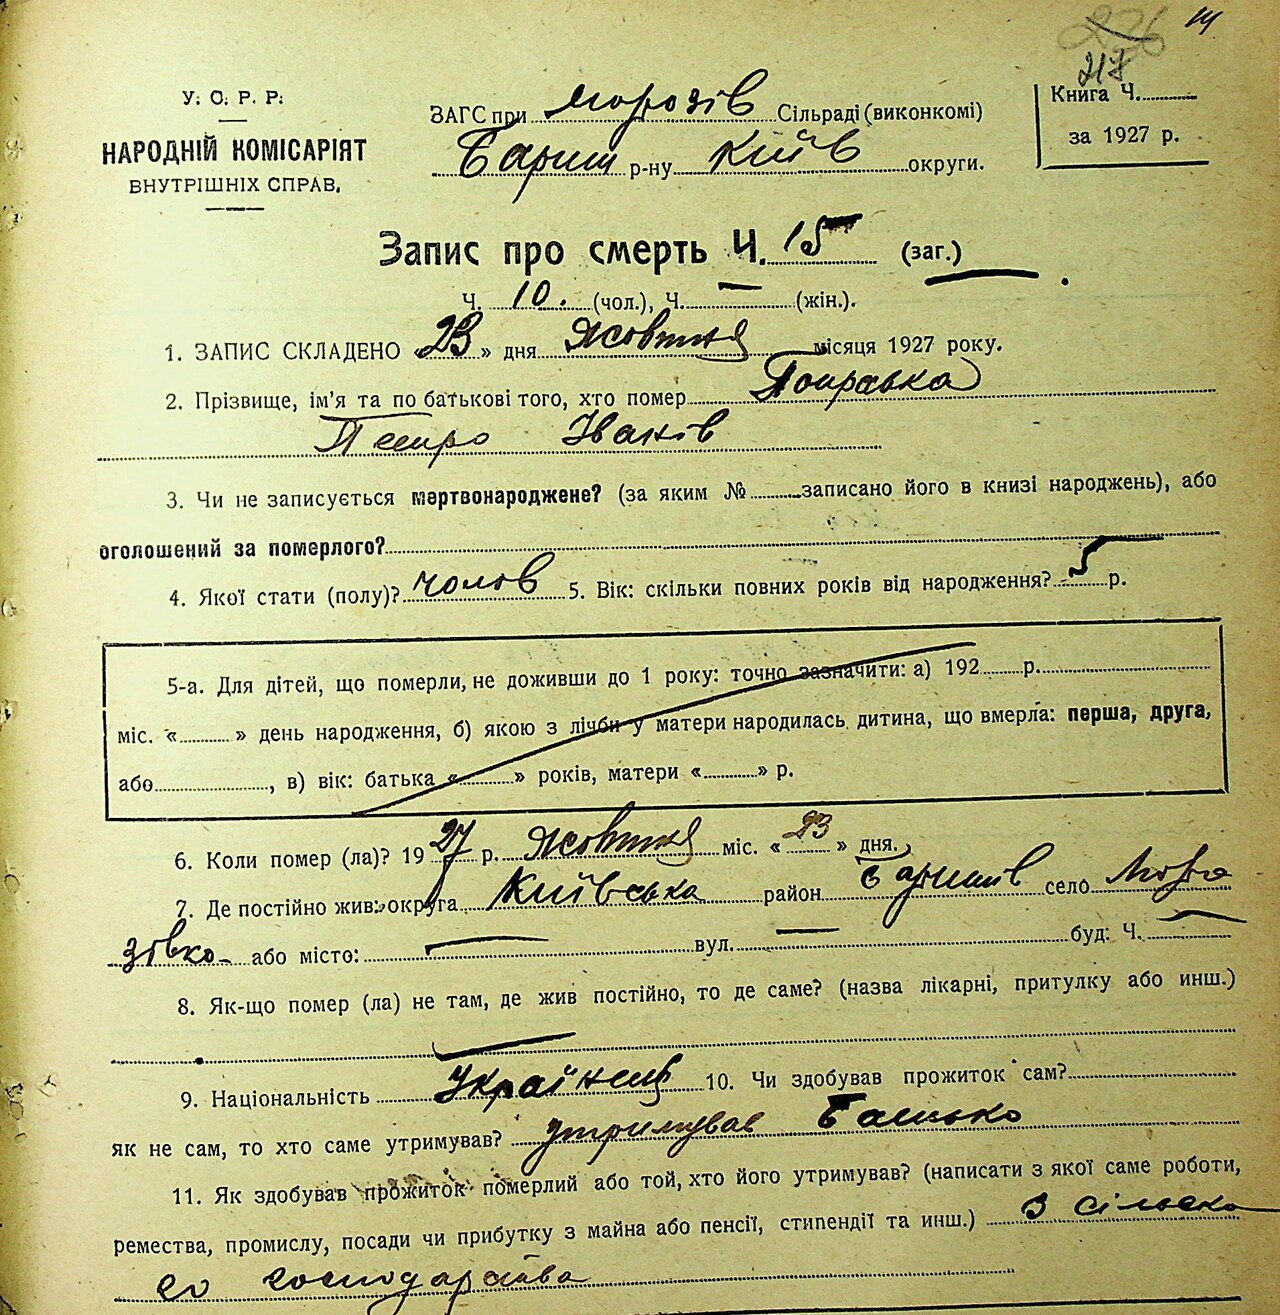 14
217
У. С. Р. Р.
НАРОДНІЙ КОМІСАРІЯТ
ВНУТРІШНІХ СПРАВ.
ЗАГС при Морозів Сільраді (виконкомі)
Бариш р-ну Київ округи.
Книга Ч.
за 1927 р.
Запис про смерть Ч. 15 (заг.)
Ч. 10. (чол.), Ч. — (жін.).
1. ЗАПИС СКЛАДЕНО «23» дня Жовтня місяця 1927 року.
2. Прізвище, ім'я та по батькові того, хто помер Поправка
Петро Іванів
3. Чи не записується мертвонароджене? (за яким № записано його в книзі народжень), або
оголошений за померлого?
4. Якої стати (полу)? чолов 5. Вік: скільки повних років від народження? 5 р.
5-а. Для дітей, що померли, не доживши до 1 року: точно зазначити: а) 192 р.
міс. « » день народження, б) якою з лічби у матери народилась дитина, що вмерла: перша, друга,
або , в) вік: батька « » років, матери « » р.
6. Коли помер (ла)? 1927 р. Жовтня міс. «23» дня.
7. Де постійно жив: округа Київська район Баришів село Моро
зівко- або місто: — вул. — буд: Ч. —
8. Як-що помер (ла) не там, де жив постійно, то де саме? (назва лікарні, притулку або инш.)
—
9. Національність Українець 10. Чи здобував прожиток сам?
як не сам, то хто саме утримував? утримував Батько
11. Як здобував прожиток померлий або той, хто його утримував? (написати з якої саме роботи,
ремества, промислу, посади чи прибутку з майна або пенсії, стипендії та инш.) З сільско
го господарства